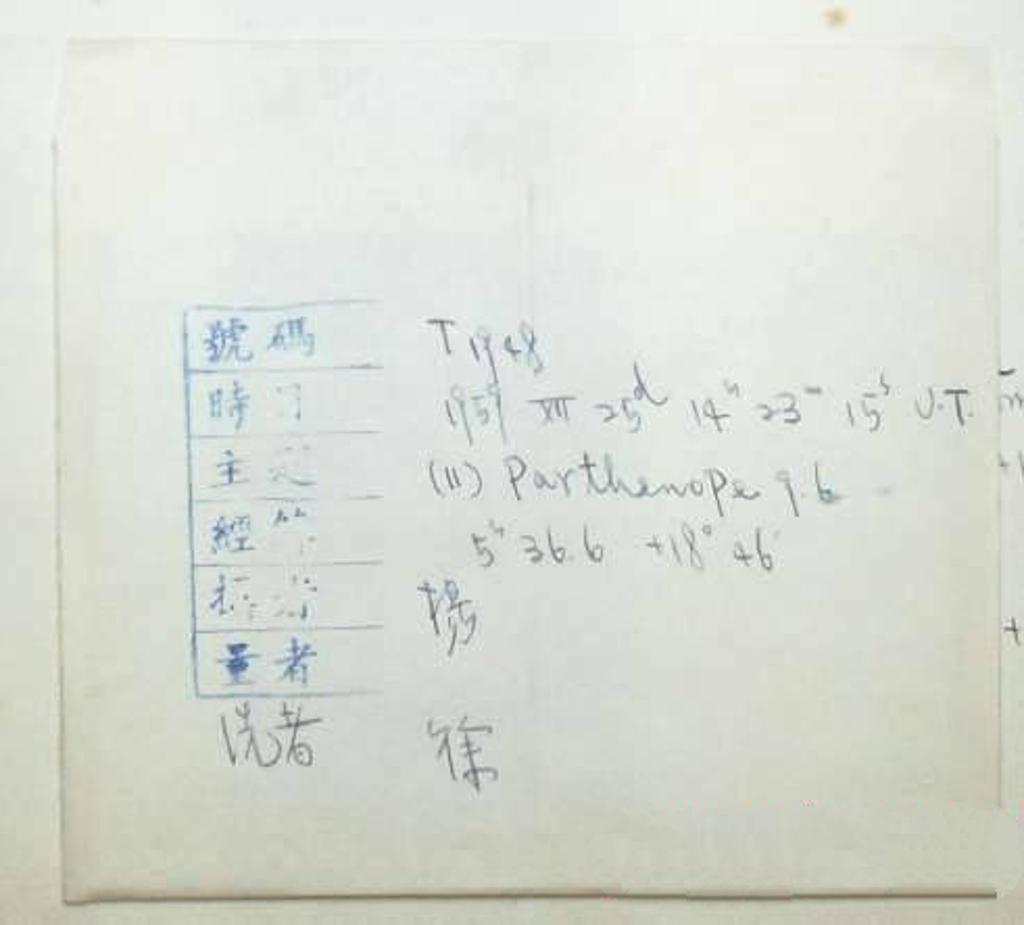 號碼 T 1948
時 1959 XII 25d 14h 23m 15s U.T.
主 (11) Parthenope 9.6
經 5h 36.6 +18° 46'
楊
量者
洗者 徐